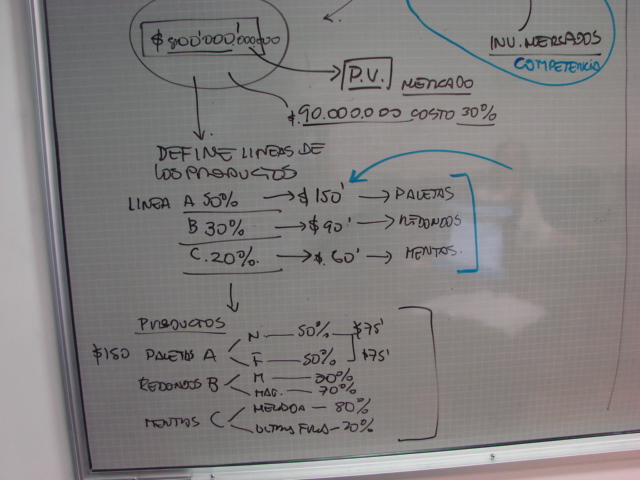 INV. MERCADOS
COMPETENCIA
P.V.
MERCADO
$.90.000.000 COSTO 30%
DEFINE LINEAS DE
LOS PRODUCTOS
LINEA A 50% → $150' → PALETAS
B 30% → $90' → REDONDOS
C. 20% → $.60' → MENTAS.
PRODUCTOS
$150 PALETAS A N — 50% $75'
F — 50% $75'
REDONDOS B M — 30%
MAG. — 70%
MENTAS C MELADA — 80%
ULTRA FRIA — 20%